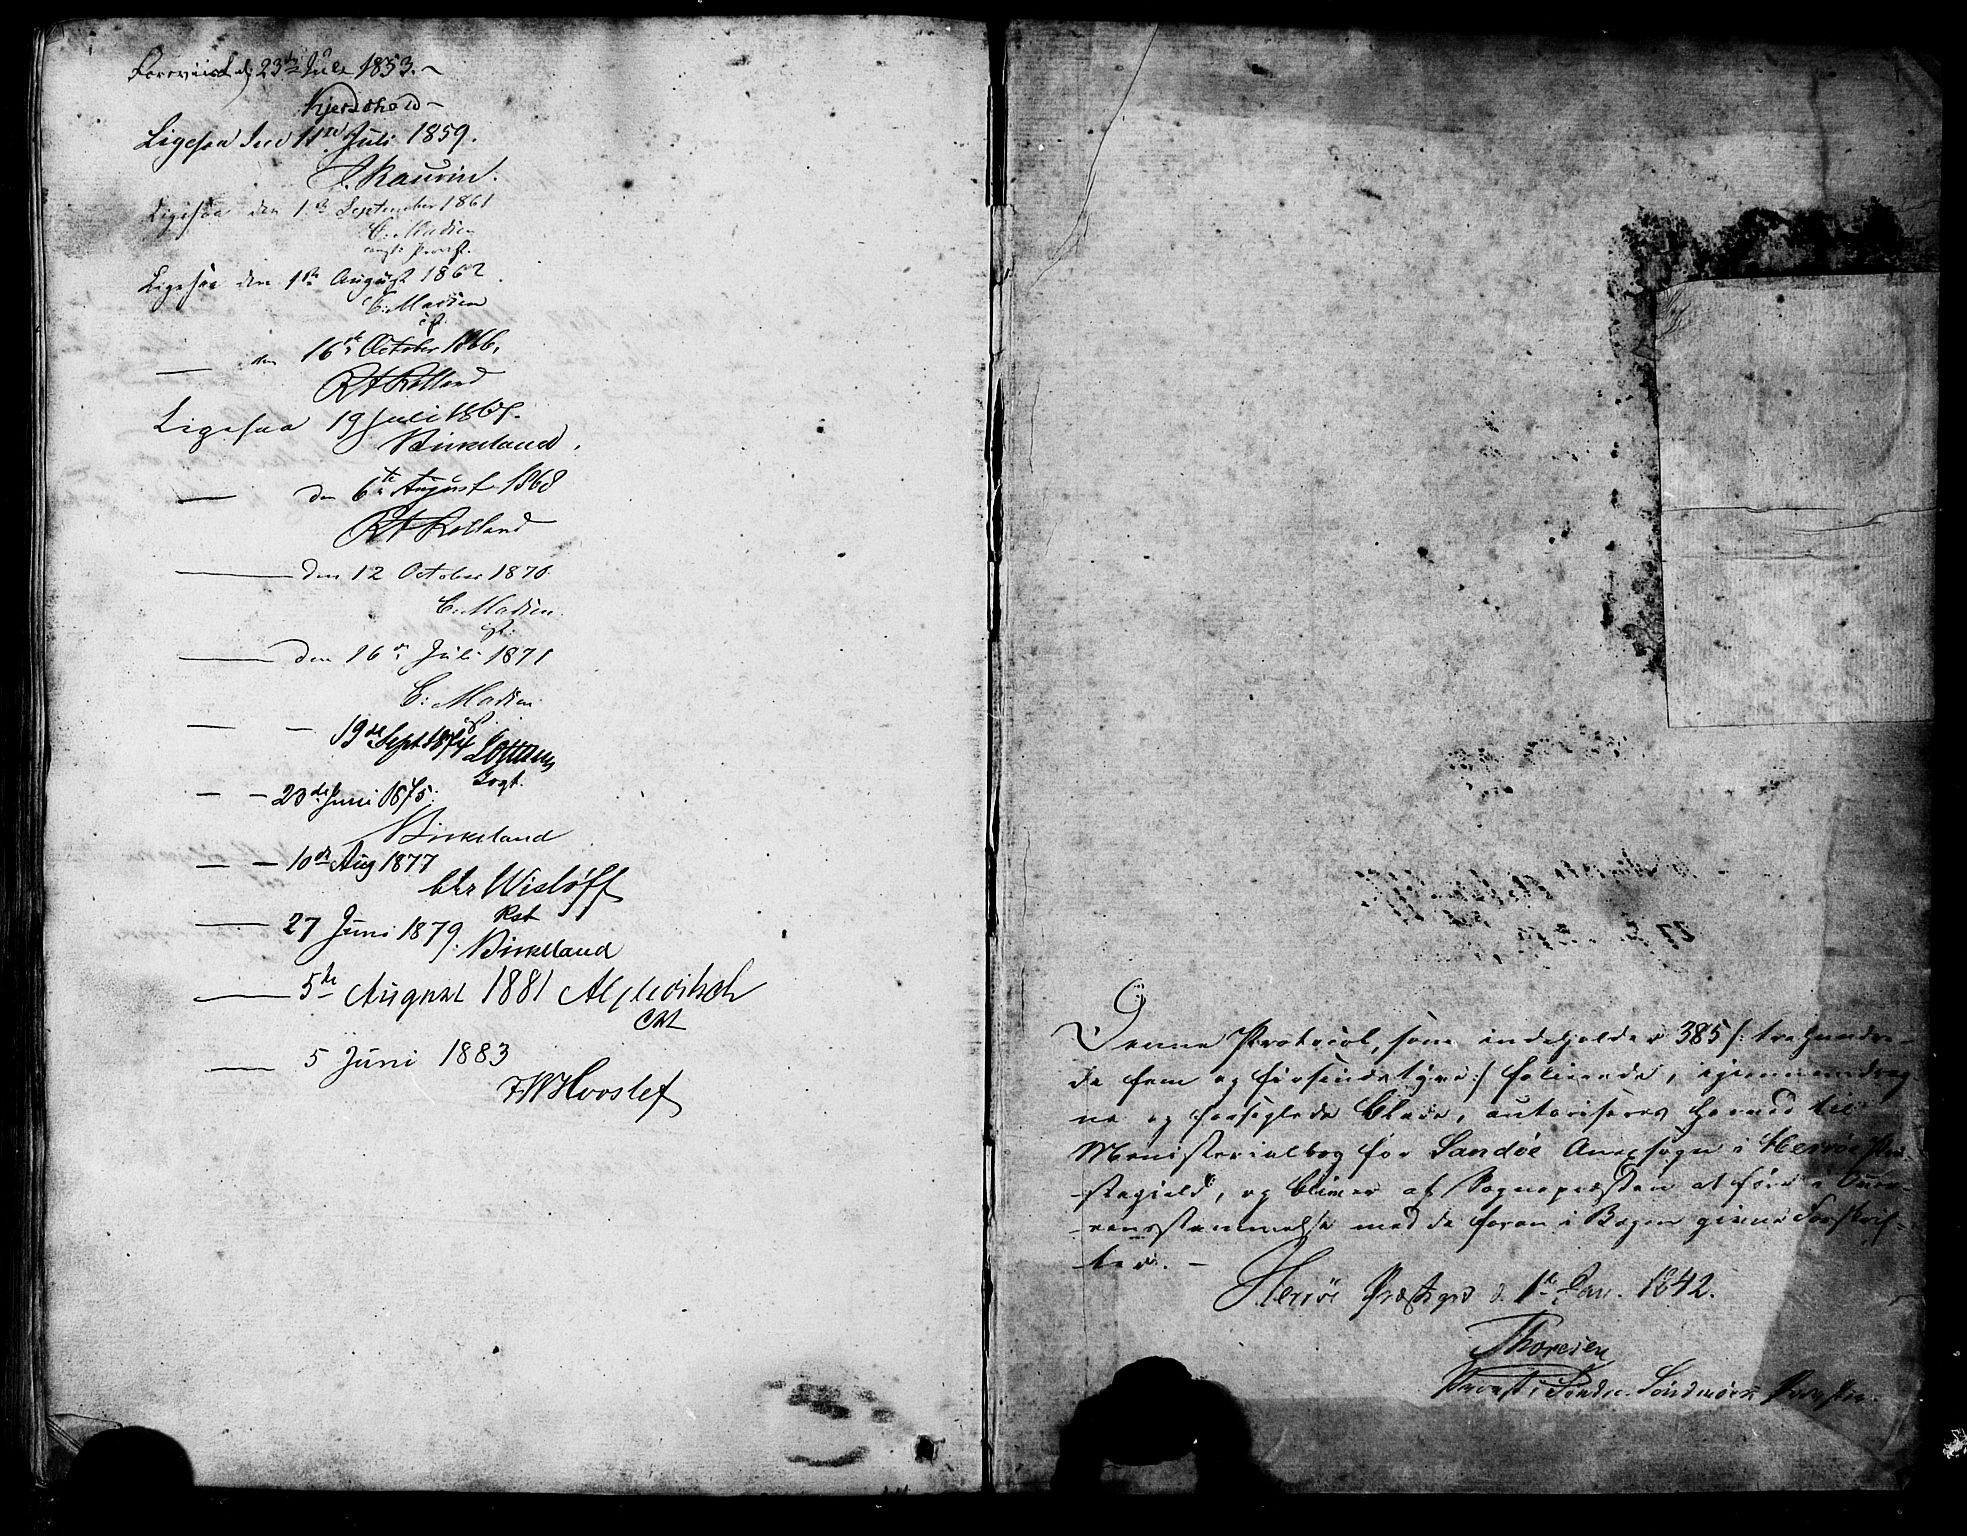 Foreviist d. 23de Juli 1853. –
Kjerschow –
Ligesaa den 11te Juli 1859.
J. Kaurin.
Ligesaa den 1ste September 1861
C: Madsen
const: Provst.
Ligesaa den 1ste August 1862.
C: Madsen
cst.
— den 16de October 1866.
R A Rolland
Ligesaa 19 Juli 1867.
Birkeland.
— den 6te August 1868
R A Rolland
— den 12 October 1870.
C: Madsen.
cst.
— den 16de Juli 1871
C: Madsen.
cst.
— — 19de Sept 1874
Fogt.
— — 23de Juni 1875.
Birkeland
— — 10de Aug 1877
Chr Wisløff
Kst
— 27 Juni 1879.
Birkeland
— 5te August 1881
Cst
— 5 Juni 1883
F W Hvoslef
Denne Protocol, som indeholder 385 /: trehundre-
de fem og firsindstyve :/ folierede, igjennemdrag-
ne og forseglede Blade, autoriseres herved til
Ministerialbog for Sandøe Annexsogn i Herrøe Præ-
stegjeld, og bliver af Sognepræsten at føre i Over-
eensstemmelse med de foran i Bogen givne Forskrif-
ter. –
Herrøe Præstegrd d. 1ste Jan. 1842.
Thoresen
Provst i Søndre Søndmørs Provstie.